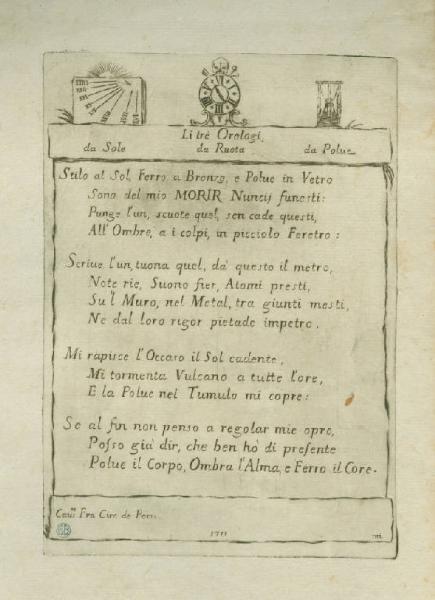 Li trè Orologi,
da Sole da Ruota da Polue
Stilo al Sol, Ferro a Bronzo, e Polue in Vetro
Sono del mio MORIR Nuncij funesti:
Punge l'un, scuote quel, sen cade questi,
All'Ombre, a i colpi, in picciolo Feretro:
Scriue l'un, tuona quel, dà questo il metro,
Note rie, Suono fier, Atomi presti,
Su'l Muro, nel Metal, tra giunti mesti,
Ne dal loro rigor pietade impetro.
Mi rapisce l'Occaso il Sol cadente,
Mi tormenta Vulcano a tutte l'ore,
E la Polue nel Tumulo mi copre:
Se al fin non penso a regolar mie opre,
Posso già dir, che ben hò di presente
Polue il Corpo, Ombra l'Alma, e Ferro il Core.
Fra Cir. de
1711